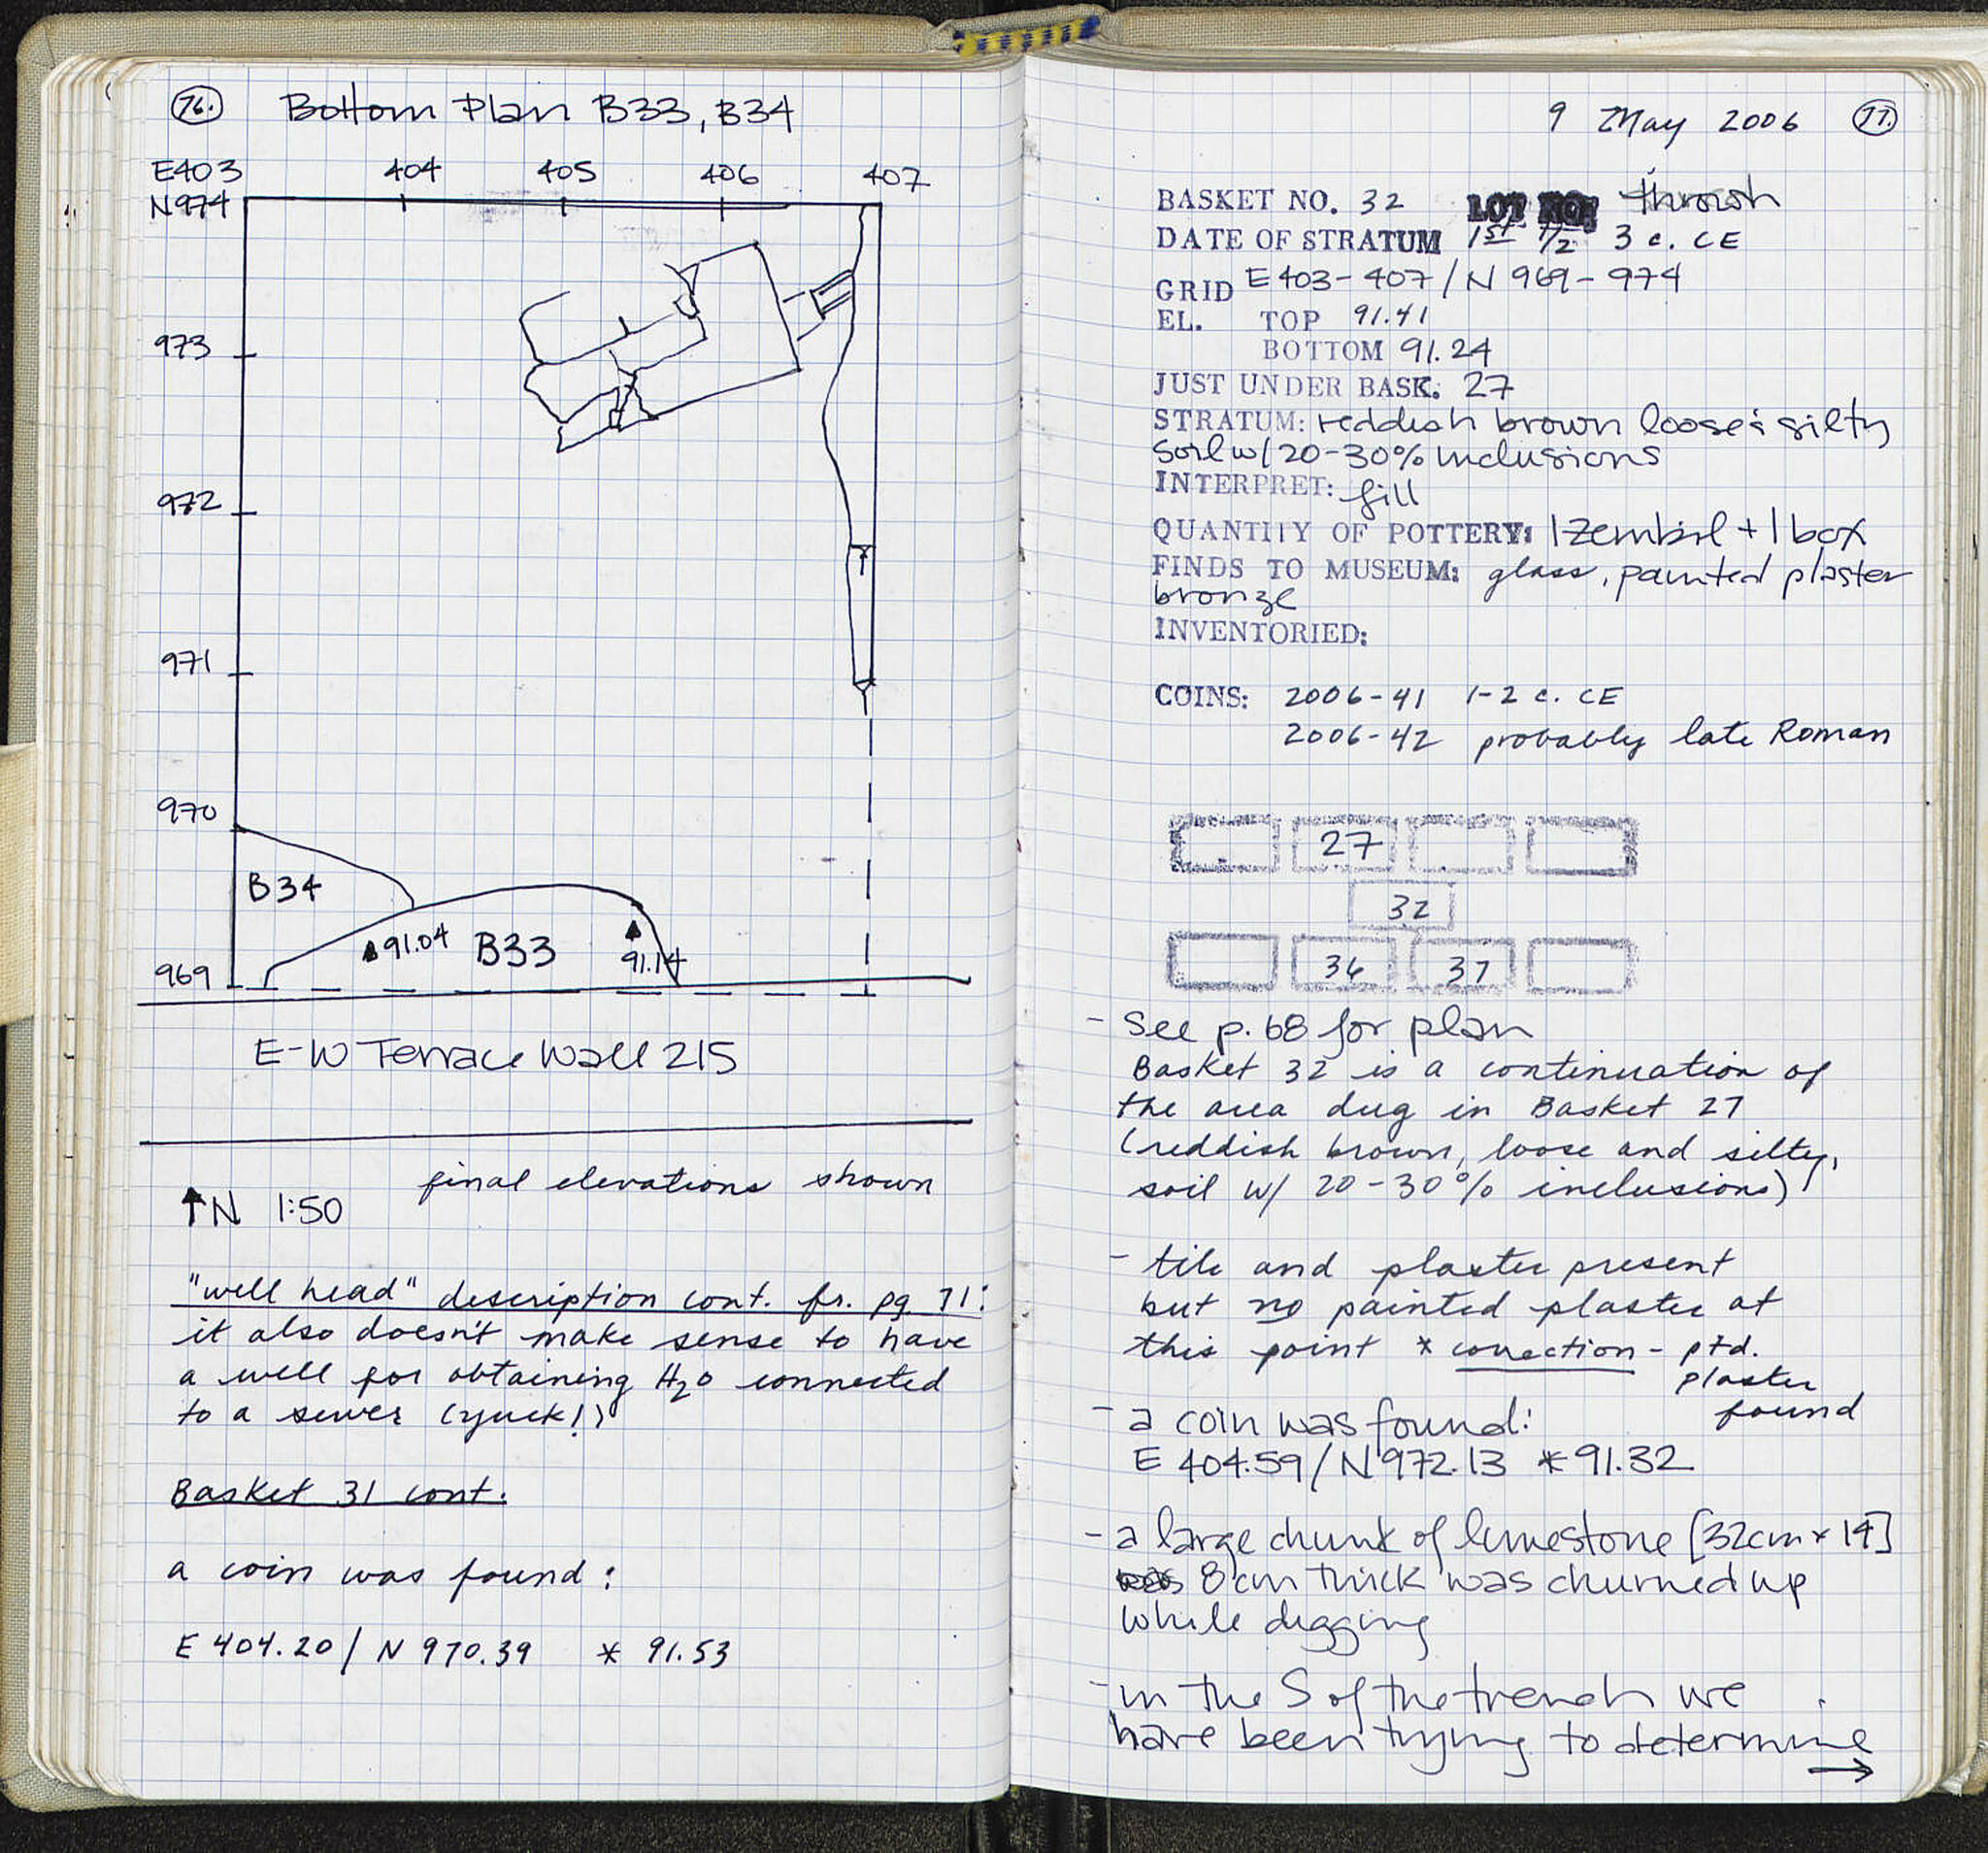 76.
Bottom Plan B33, B34
E403 404 405 406 407
N974
973
972
971
970
B34
91.04 B33
91.14
969
E-W Terrace Wall 215
final elevations shown
↑N 1:50
"well head" description cont. fr. pg 71:
it also doesn't make sense to have
a well for obtaining H₂O connected
to a sewer (yuck!)
Basket 31 cont.
a coin was found:
E 404.20 / N 970.39 * 91.53
9 May 2006 77.
BASKET NO. 32 LOT NO: throwsh
DATE OF STRATUM 1st 1/2 3 c. CE
GRID E403-407/N 969-974
EL. TOP 91.41
BOTTOM 91.24
JUST UNDER BASK: 27
STRATUM: reddish brown loose & silty
soil w/ 20-30% inclusions
INTERPRET: fill
QUANTITY OF POTTERY: 1 zembil + 1 box
FINDS TO MUSEUM: glass, painted plaster
bronze
INVENTORIED:
COINS: 2006-41 1-2 c. CE
2006-42 probably late Roman
27
32
36 37
- See p. 68 for plan
Basket 32 is a continuation of
the area dug in Basket 27
(reddish brown, loose and silty,
soil w/ 20-30% inclusions)
- tile and plaster present
but no painted plaster at
this point * correction - ptd.
plaster
found
- a coin was found:
E 404.59/N 972.13 * 91.32
- a large chunk of limestone [32cm x 14]
8 cm thick was churned up
while digging
- in the S of the trench we
have been trying to determine
→